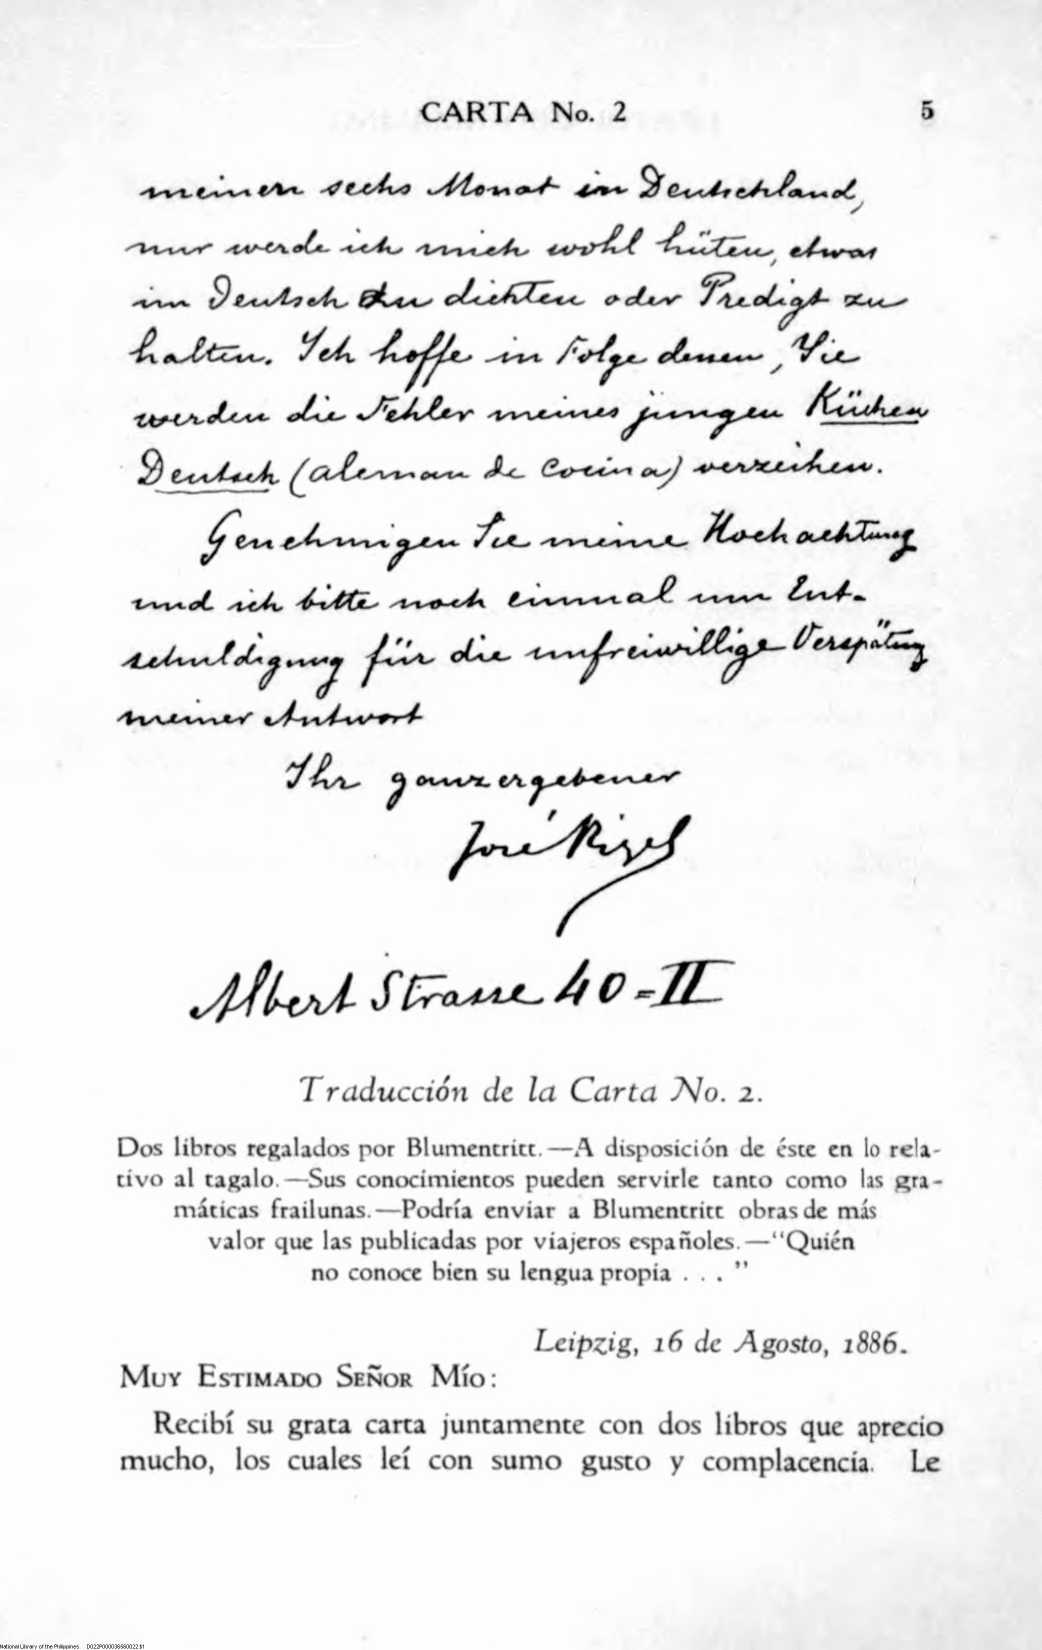 CARTA No. 2 5
meinen sechs Monat in Deutschland,
nur werde ich mich wohl hüten, etwas
im Deutsch zu dichten oder Predigt zu
halten. Ich hoffe in Folge dessen, Sie
werden die Fehler meines jungen Küchen
Deutsch (aleman de cocina) verzeihen.
Genehmigen Sie meine Hochachtung
und ich bitte noch einmal um Ent-
schuldigung für die unfreiwillige Verspätung
meiner Antwort
Ihr ganz ergebener
José Rizal
Albert Strasse 40=II
Traducción de la Carta No. 2.
Dos libros regalados por Blumentritt.—A disposición de éste en lo rela-
tivo al tagalo.—Sus conocimientos pueden servirle tanto como las gra-
máticas frailunas.—Podría enviar a Blumentritt obras de más
valor que las publicadas por viajeros españoles.—“Quién
no conoce bien su lengua propia . . . ”
Leipzig, 16 de Agosto, 1886.
MUY ESTIMADO SEÑOR MÍO:
Recibí su grata carta juntamente con dos libros que aprecio
mucho, los cuales leí con sumo gusto y complacencia. Le
National Library of the Philippines